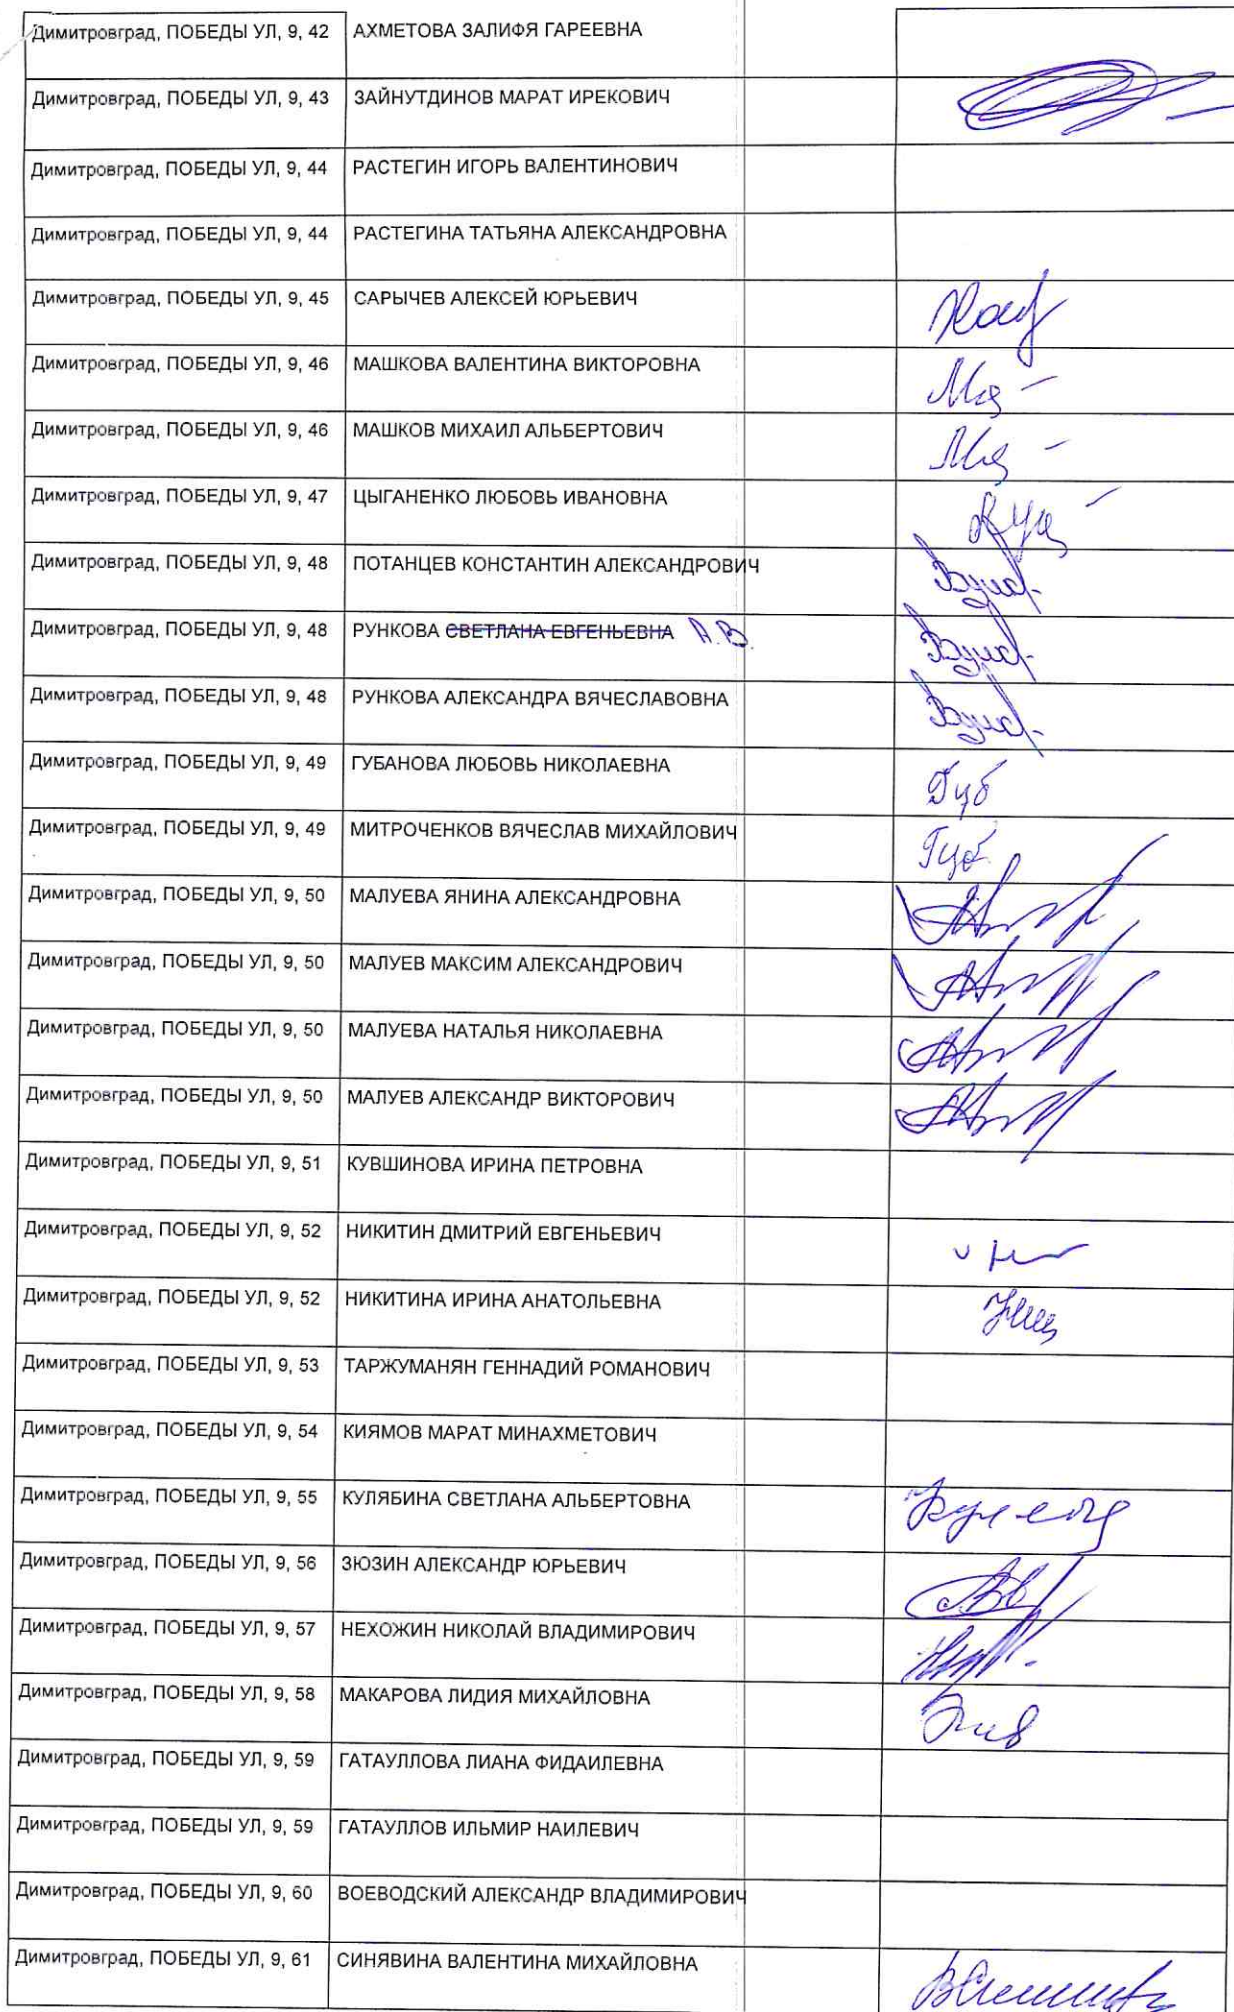 Димитровград, ПОБЕДЫ УЛ, 9, 42 АХМЕТОВА ЗАЛИФЯ ГАРЕЕВНА
Димитровград, ПОБЕДЫ УЛ, 9, 43 ЗАЙНУТДИНОВ МАРАТ ИРЕКОВИЧ
Димитровград, ПОБЕДЫ УЛ, 9, 44 РАСТЕГИН ИГОРЬ ВАЛЕНТИНОВИЧ
Димитровград, ПОБЕДЫ УЛ, 9, 44 РАСТЕГИНА ТАТЬЯНА АЛЕКСАНДРОВНА
Димитровград, ПОБЕДЫ УЛ, 9, 45 САРЫЧЕВ АЛЕКСЕЙ ЮРЬЕВИЧ
Димитровград, ПОБЕДЫ УЛ, 9, 46 МАШКОВА ВАЛЕНТИНА ВИКТОРОВНА
Димитровград, ПОБЕДЫ УЛ, 9, 46 МАШКОВ МИХАИЛ АЛЬБЕРТОВИЧ
Димитровград, ПОБЕДЫ УЛ, 9, 47 ЦЫГАНЕНКО ЛЮБОВЬ ИВАНОВНА
Димитровград, ПОБЕДЫ УЛ, 9, 48 ПОТАНЦЕВ КОНСТАНТИН АЛЕКСАНДРОВИЧ
Димитровград, ПОБЕДЫ УЛ, 9, 48 РУНКОВА СВЕТЛАНА ЕВГЕНЬЕВНА А.В.
Димитровград, ПОБЕДЫ УЛ, 9, 48 РУНКОВА АЛЕКСАНДРА ВЯЧЕСЛАВОВНА
Димитровград, ПОБЕДЫ УЛ, 9, 49 ГУБАНОВА ЛЮБОВЬ НИКОЛАЕВНА Губ
Димитровград, ПОБЕДЫ УЛ, 9, 49 МИТРОЧЕНКОВ ВЯЧЕСЛАВ МИХАЙЛОВИЧ Губ
Димитровград, ПОБЕДЫ УЛ, 9, 50 МАЛУЕВА ЯНИНА АЛЕКСАНДРОВНА
Димитровград, ПОБЕДЫ УЛ, 9, 50 МАЛУЕВ МАКСИМ АЛЕКСАНДРОВИЧ
Димитровград, ПОБЕДЫ УЛ, 9, 50 МАЛУЕВА НАТАЛЬЯ НИКОЛАЕВНА
Димитровград, ПОБЕДЫ УЛ, 9, 50 МАЛУЕВ АЛЕКСАНДР ВИКТОРОВИЧ
Димитровград, ПОБЕДЫ УЛ, 9, 51 КУВШИНОВА ИРИНА ПЕТРОВНА
Димитровград, ПОБЕДЫ УЛ, 9, 52 НИКИТИН ДМИТРИЙ ЕВГЕНЬЕВИЧ
Димитровград, ПОБЕДЫ УЛ, 9, 52 НИКИТИНА ИРИНА АНАТОЛЬЕВНА
Димитровград, ПОБЕДЫ УЛ, 9, 53 ТАРЖУМАНЯН ГЕННАДИЙ РОМАНОВИЧ
Димитровград, ПОБЕДЫ УЛ, 9, 54 КИЯМОВ МАРАТ МИНАХМЕТОВИЧ
Димитровград, ПОБЕДЫ УЛ, 9, 55 КУЛЯБИНА СВЕТЛАНА АЛЬБЕРТОВНА
Димитровград, ПОБЕДЫ УЛ, 9, 56 ЗЮЗИН АЛЕКСАНДР ЮРЬЕВИЧ
Димитровград, ПОБЕДЫ УЛ, 9, 57 НЕХОЖИН НИКОЛАЙ ВЛАДИМИРОВИЧ
Димитровград, ПОБЕДЫ УЛ, 9, 58 МАКАРОВА ЛИДИЯ МИХАЙЛОВНА
Димитровград, ПОБЕДЫ УЛ, 9, 59 ГАТАУЛЛОВА ЛИАНА ФИДАИЛЕВНА
Димитровград, ПОБЕДЫ УЛ, 9, 59 ГАТАУЛЛОВ ИЛЬМИР НАИЛЕВИЧ
Димитровград, ПОБЕДЫ УЛ, 9, 60 ВОЕВОДСКИЙ АЛЕКСАНДР ВЛАДИМИРОВИЧ
Димитровград, ПОБЕДЫ УЛ, 9, 61 СИНЯВИНА ВАЛЕНТИНА МИХАЙЛОВНА